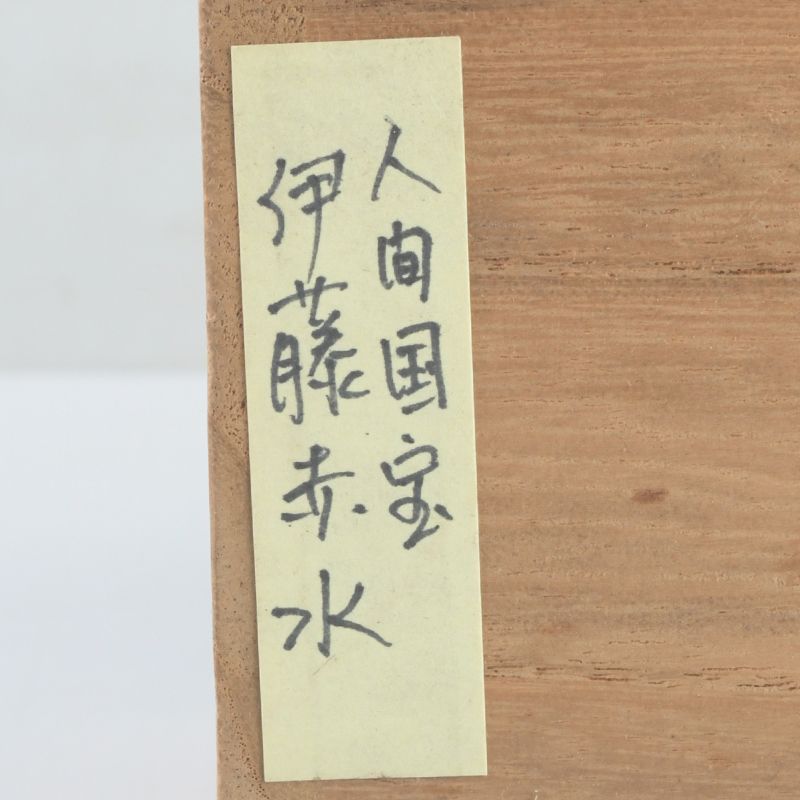 人间国宝
伊藤赤水